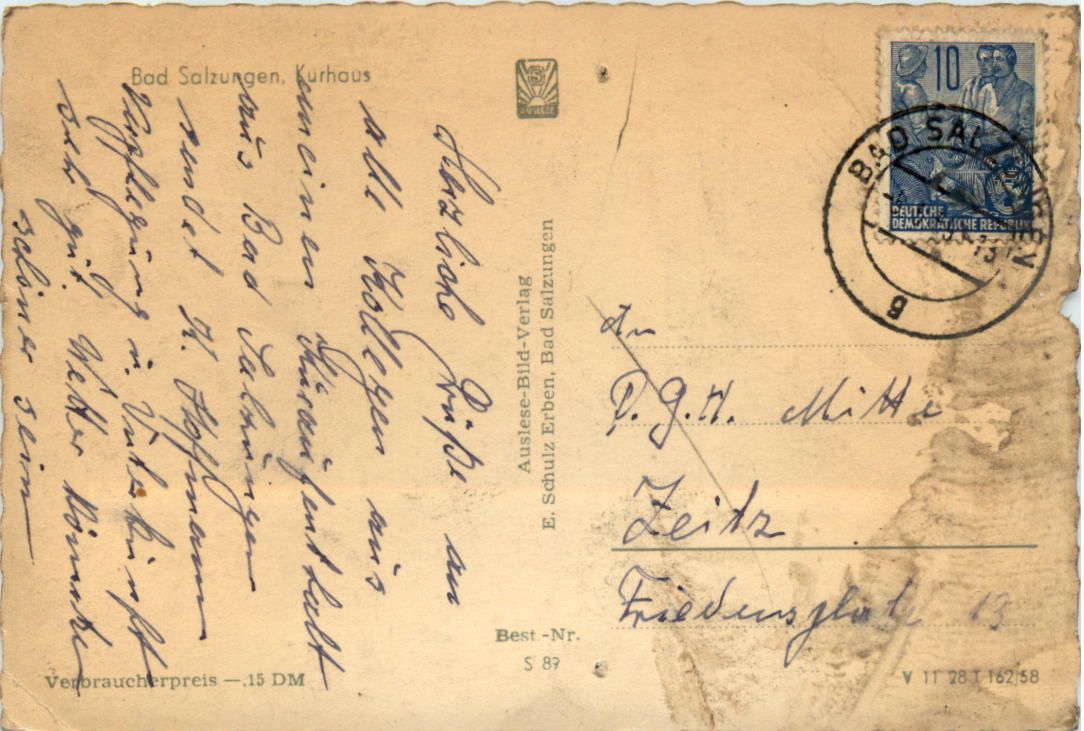 Bad Salzungen, Kurhaus
Herzliche Grüße an
alle Kollegen aus
meinen Kuraufenthalt
aus Bad Salzungen
sendet K. Hoffmann
Verpflegung u. Unterkunft
sehr gut. Wetter könnte
schöner sein
Auslese-Bild-Verlag
E. Schulz Erben, Bad Salzungen
10
DEUTSCHE
DEMOKRATISCHE REPUBLIK
BAD SALZUNGEN
g
An
P.G.H. Mitte
Zeitz
Friedensplatz 13
Best.-Nr.
S 89
Verbraucherpreis —.15 DM
V 11 28 T 162/58